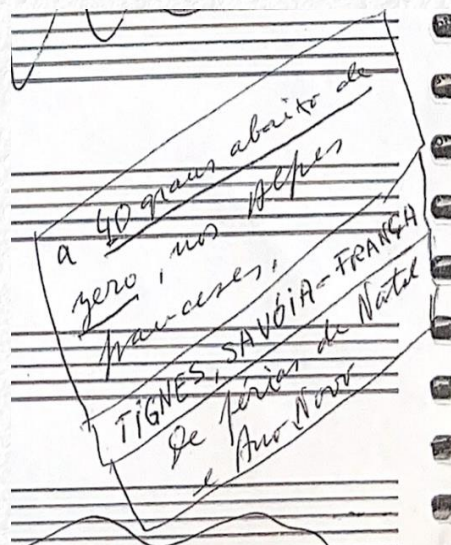 a 40 graus abaixo de
zero, nos Alpes
franceses,
TIGNES, SAVÓIA-FRANÇA
De férias de Natal
e Ano Novo